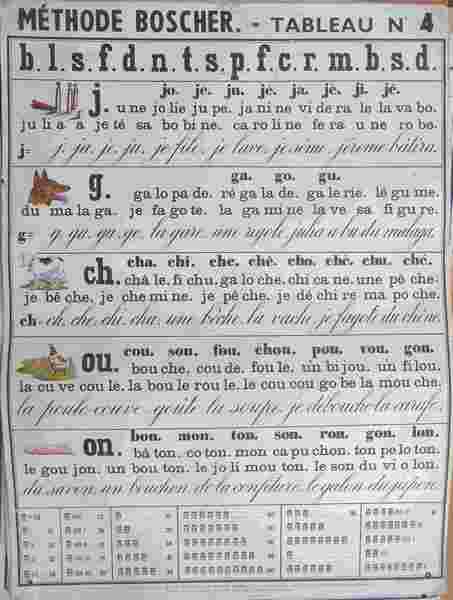 MÉTHODE BOSCHER. - TABLEAU N° 4
b. l. s. f. d. n. t. s. p. f. c. r. m. b. s. d.
jo. je. ju. jé. ja. jè. ji. jê.
j. u ne jo lie ju pe. ja ni ne vi de ra le la va bo.
ju li a a je té sa bo bi ne. ca ro li ne fe ra u ne ro be.
j= j. ja. je. ju. je file. je lave. je sème. jérôme bâtira.
ga. go. gu.
g. ga lo pa de. ré ga la de. ga le rie. lé gu me.
du ma la ga. je fa go te. la ga mi ne la ve sa fi gu re.
g= g. ga. gu. go. la gare. une rigole. julia a bu du malaga.
cha. chi. che. chè. cho. ché. chu. chê.
ch. châ le. fi chu. ga lo che. chi ca ne. u ne pê che.
je bê che. je che mi ne. je pê che. je dé chi re ma po che.
ch= ch. che. chi. cha. une bêche. la vache. je fagote du chêne.
cou. sou. fou. chou. pou. vou. gou.
ou. bou che. cou de. fou le. un bi jou. un fi lou.
la cu ve cou le. la bou le rou le. le cou cou go be la mou che.
la poule couve. goûte la soupe. je débouche la carafe.
bon. mon. ton. son. ron. gon. lon.
on. bâ ton. co ton. mon ca pu chon. ton pe lo ton.
le gou jon. un bou ton. le jo li mou ton. le son du vi o lon.
du savon. un bouchon. de la confiture. le galon du pépère.